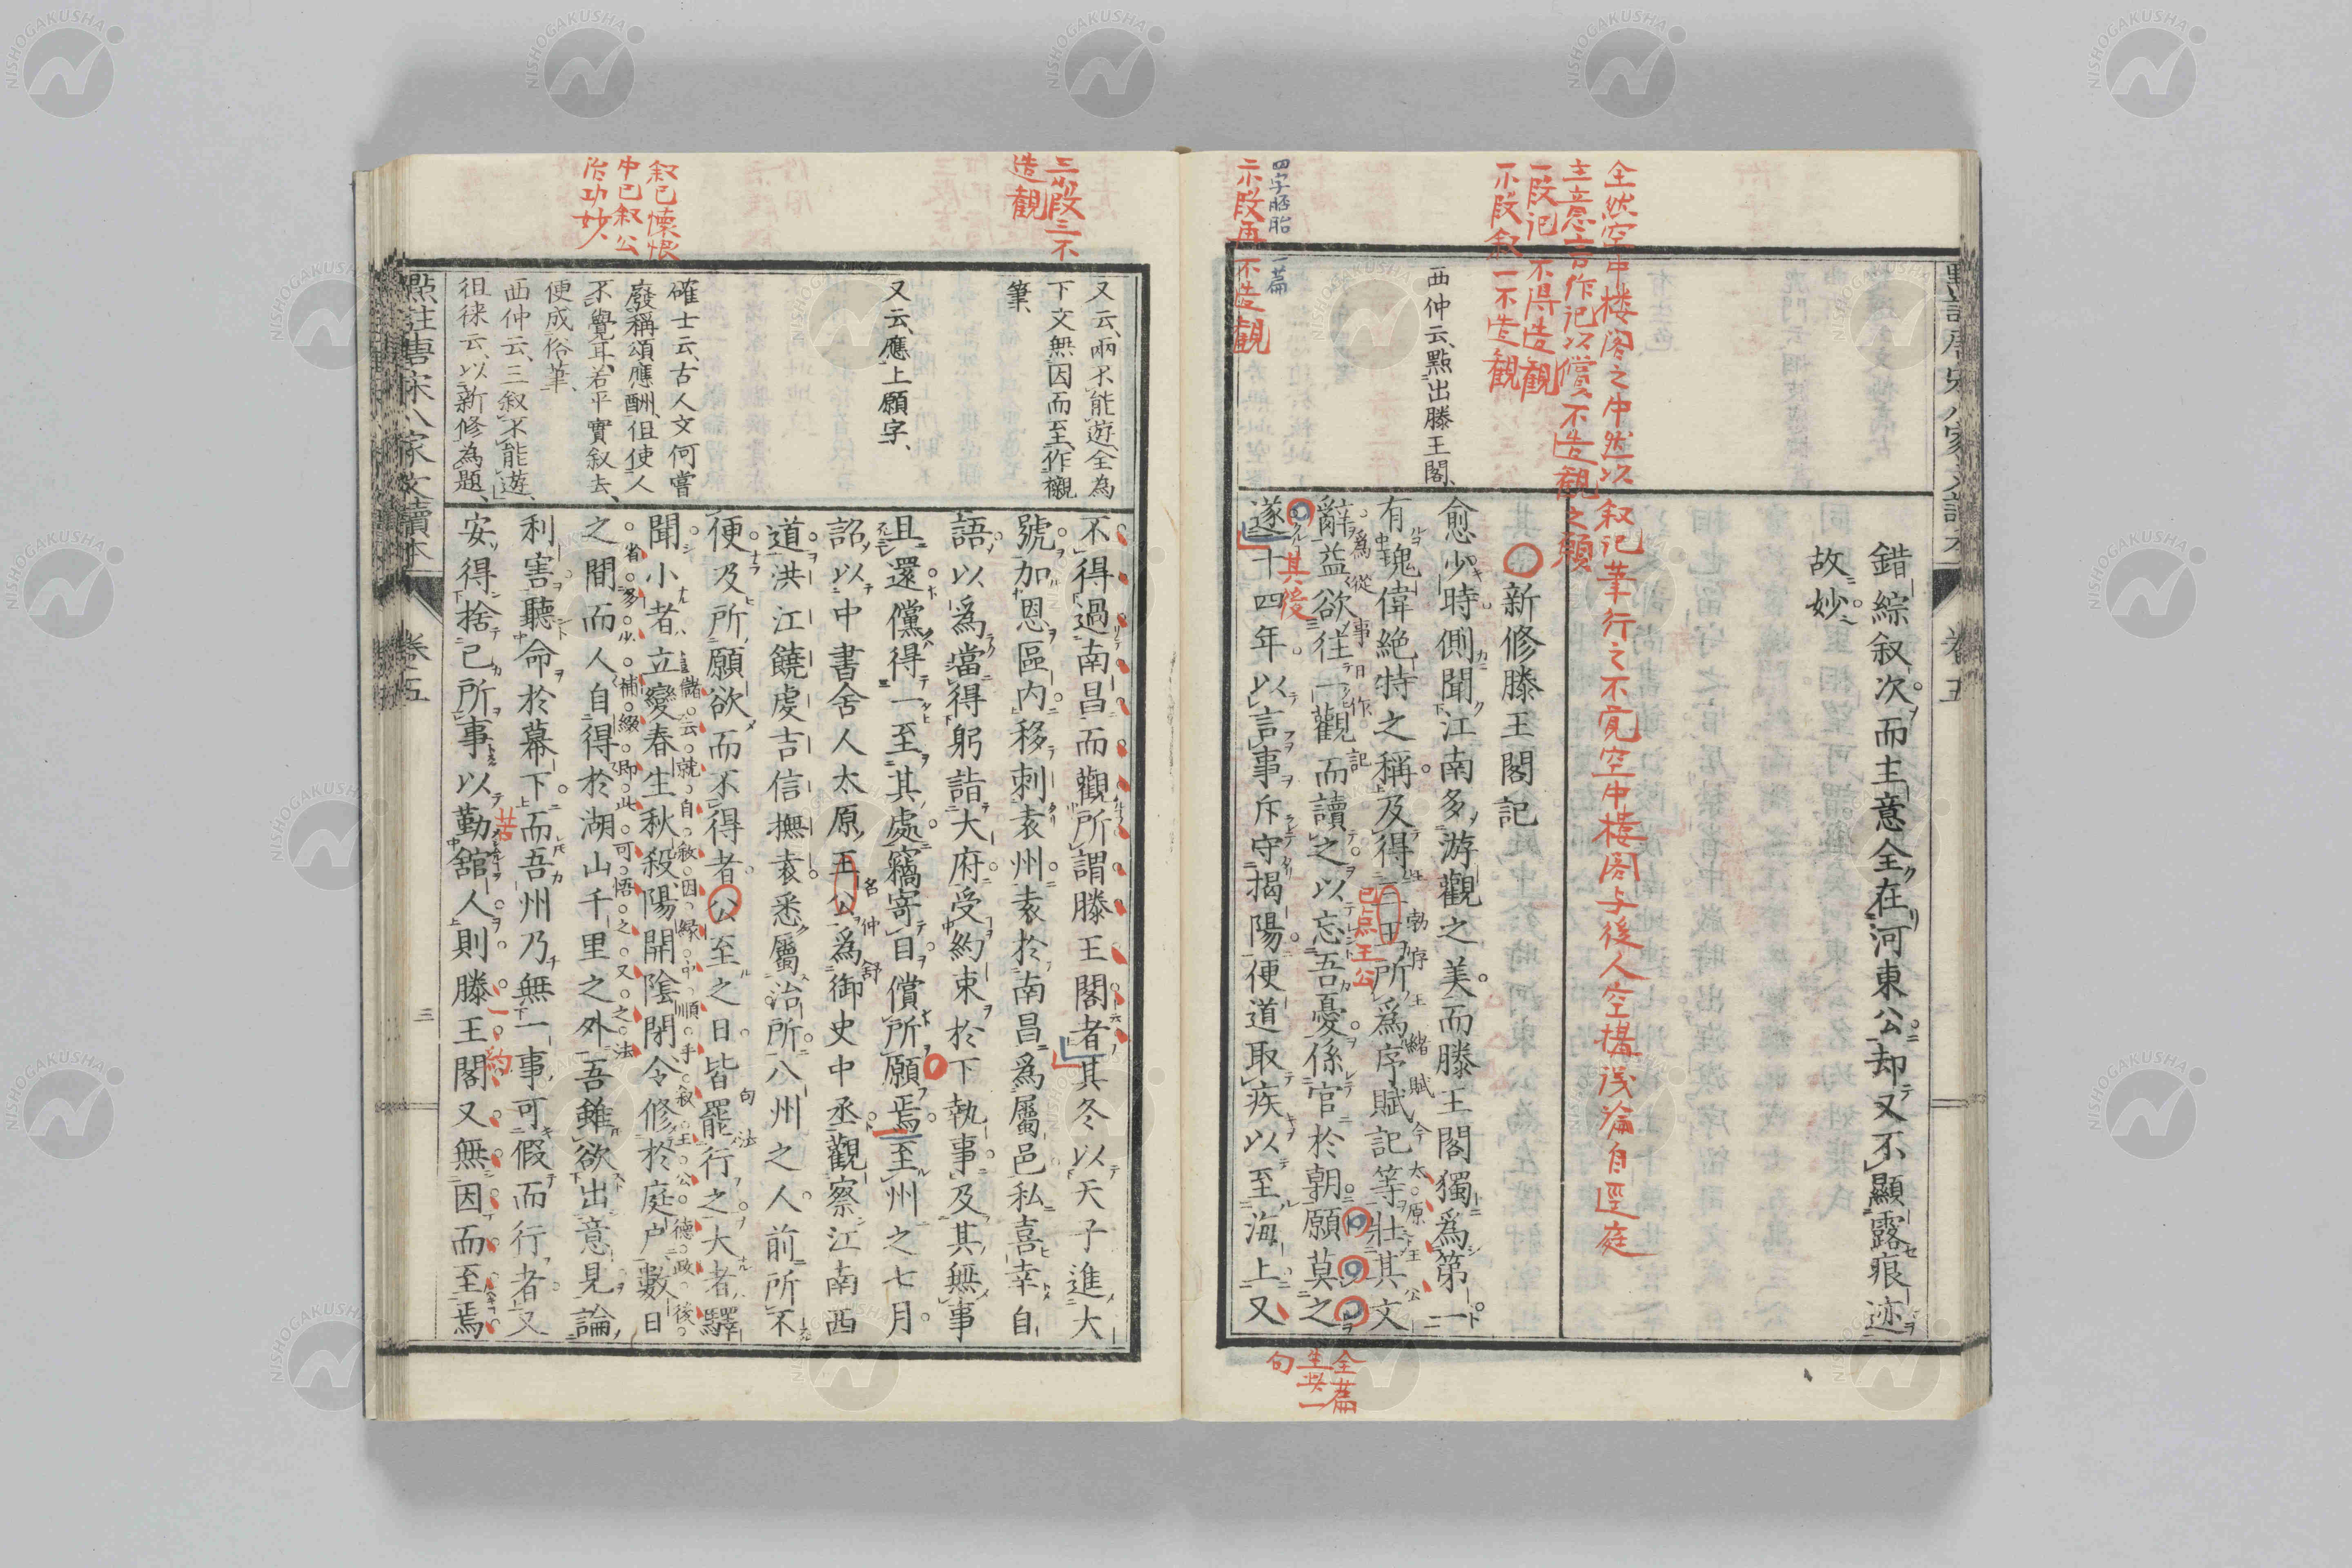 錯綜叙次而主意全在河東公却又不顯露痕迹
故妙
全然空中楼阁之中然以叙记筆行之不覓空中楼阁与後人空搆浅論自逕庭
主意言作记以償不造觀之願
一段记不得造觀
示段叙一不造觀
新修滕王閣記
西仲云、點出滕王閣、
愈少時側聞江南多游觀之美而滕王閣獨爲第一
有瑰偉絶特之稱及得三王所爲序賦記等壯其文
勃序 王緒賦 今太原王公
已点王公
辭益欲往一觀而讀之以忘吾憂係官於朝願莫之
爲從事日作記
四字胚胎一篇
示段再不造觀
其後
遂十四年以言事斥守揭陽便道取疾以至海上又
全篇
生此一
句
點註唐宋八家文讀本 卷五
三
示段三不
造觀
又云、兩不能遊、全為
下文無因而至、作襯
筆、
不得過南昌而觀所謂滕王閣者其冬以天子進大
號加恩區内移刺袁州袁於南昌爲屬邑私喜幸自
語以爲當得躬詣大府受約束於下執事及其無事
又云、應上願字、
且還儻得一至其處竊寄目償所願焉至州之七月
詔以中書舍人太原王公爲御史中丞觀察江南西
名仲舒
道洪江饒虔吉信撫袁悉屬治所八州之人前所不
便及所願欲而不得者公至之日皆罷行之大者驛
句法
叙已懷恨
中已叙公
治功妙
確士云、古人文何嘗
廢稱頌應酬、但使人
不覺耳、若平實叙去、
便成俗筆、
聞小者立變春生秋殺陽開陰閉令修於庭户數日
儲云就自敘因緣中順手敘王公德政後
之間而人自得於湖山千里之外吾雖欲出意見論
省多少補綴即此可悟文之法
利害聽命於幕下而吾州乃無一事可假而行者又
西仲云、三叙不能遊、
徂徠云、以新修為題、
安得捨己所事以勤舘人則滕王閣又無因而至焉